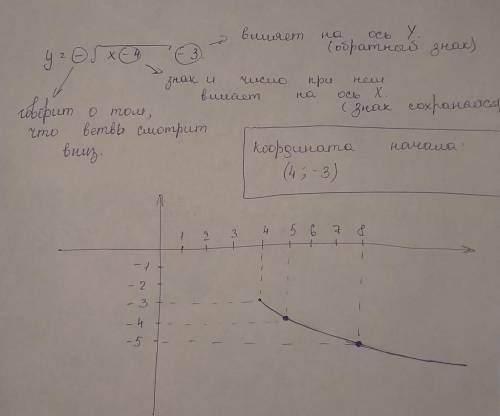 влияет на ось Y.
(обратный знак)
y = -√x-4 -3
знак и число при нем
влияет на ось X.
(знак сохраняется
говорит о том,
что ветвь смотрит
вниз.
Координата начала:
(4; -3)
1 2 3 4 5 6 7 8
-1
-2
-3
-4
-5